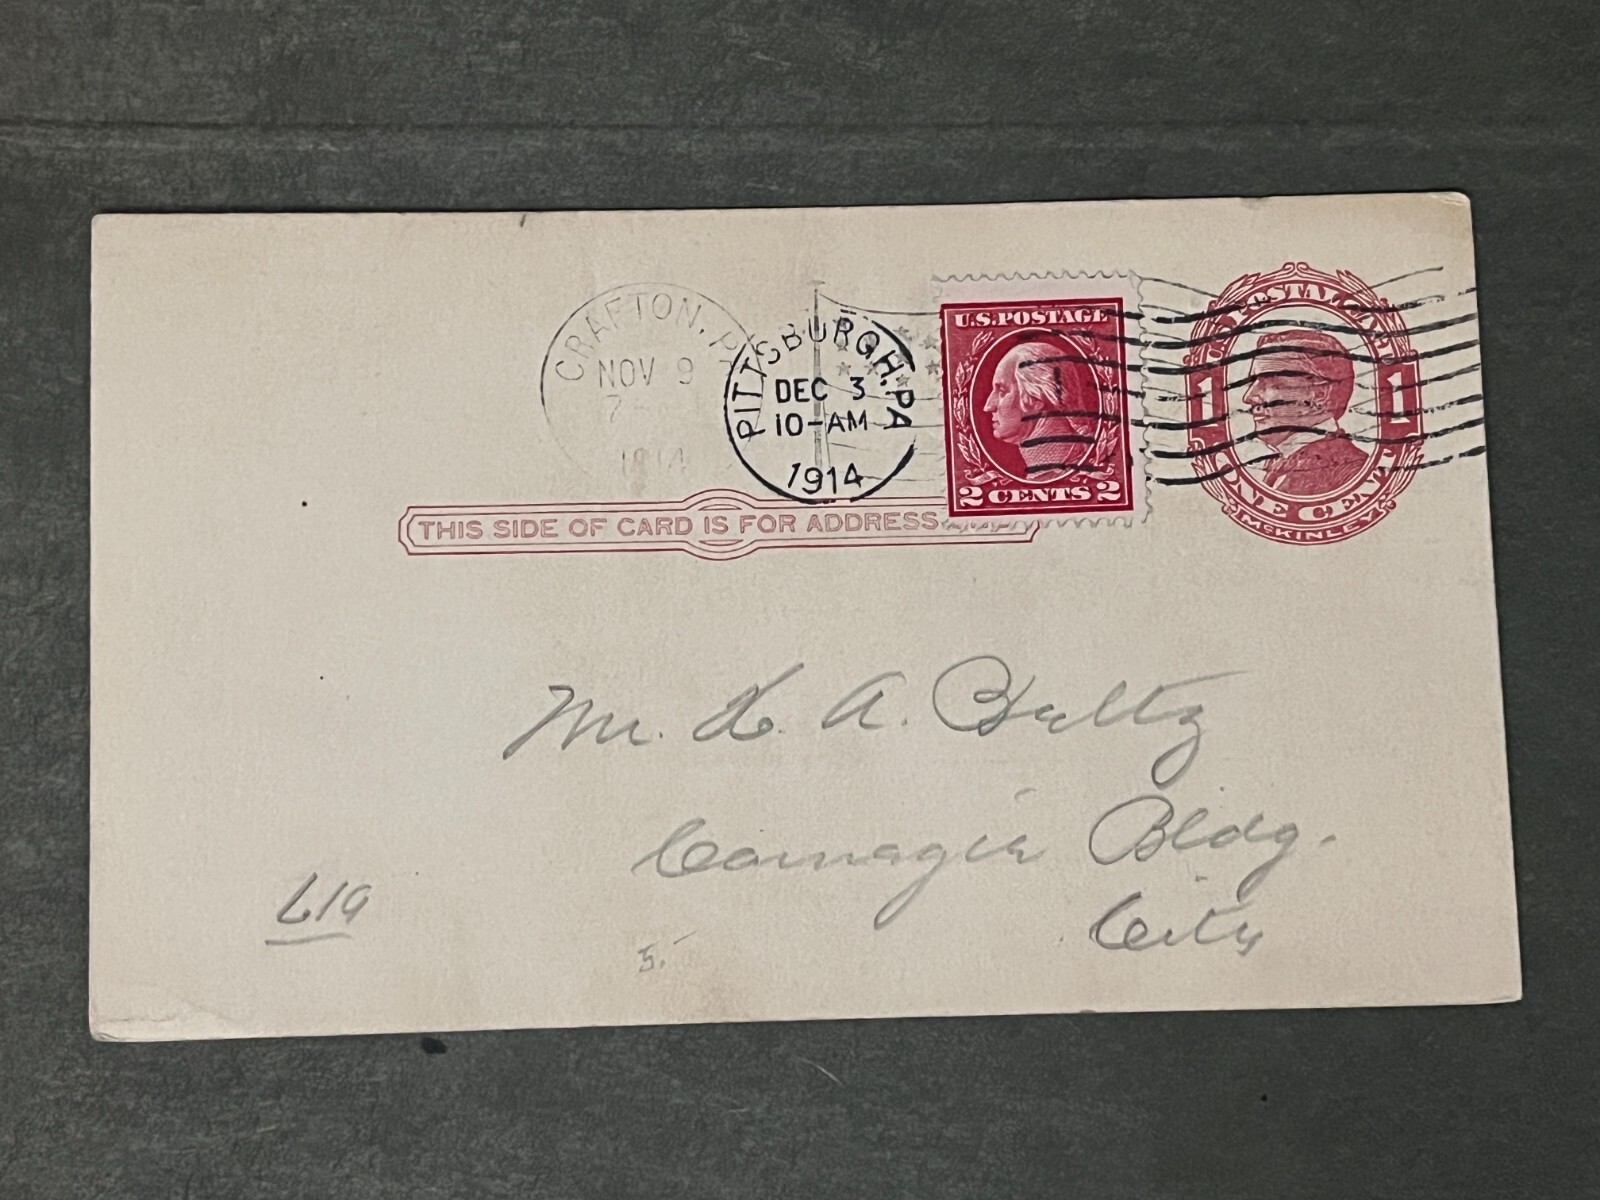 CRAFTON, P
NOV 9
7-
1914
PITTSBURGH, PA
DEC 3
10-AM
1914
U.S. POSTAGE
2 CENTS 2
POSTAL CARD
1 1
ONE CENT
McKINLEY
THIS SIDE OF CARD IS FOR ADDRESS
Mr. H. A. Bultz
Carnagie Bldg.
City
L19
5.